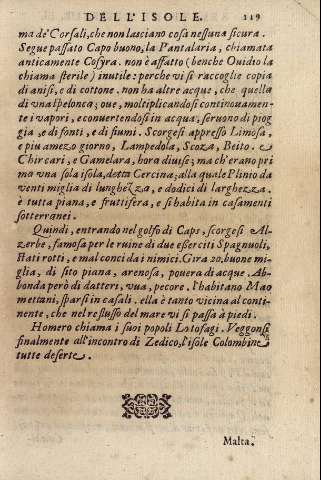 DELL'ISOLE. 119
ma de' Corsali, che non lasciano cosa nessuna sicura.
Segue passato Capo buono, la Pantalaria, chiamata
anticamente Cosyra. non è affatto (benche Ouidio la
chiama sterile) inutile: perche vi si raccoglie copia
di anisi, e di cottone. non ha altre acque, che quella
di vna spelonca; oue, moltiplicandosi continouamen-
te i vapori, e conuertendosi in acqua, seruono di piog
gia, e di fonti, e di fiumi. Scorgesi appresso Limosa,
e piu amezo giorno, Lampedola, Scoza, Beito. e
Chircari, e Gamelara, hora diuise; ma ch'erano pri
mo vna sola isola, detta Cercina; alla quale Plinio da
venti miglia di lunghezza, e dodici di larghezza.
è tutta piana, e fruttifera, e si habita in casamenti
sotterranei.
Quindi, entrando nel golfo di Caps, scorgesi Al-
zerbe, famosa per le ruine di due eserciti Spagnuoli,
stati rotti, e mal conci da i nimici. Gira 20. buone mi
glia, di sito piana, arenosa, pouera di acque. Ab-
bonda però di datteri, vua, pecore. l'habitano Mao
mettani, sparsi in casali. ella è tanto vicina al conti-
nente, che nel reflusso del mare vi si passa à piedi.
Homero chiama i suoi popoli Lotofagi. Veggonsi
finalmente all'incontro di Zedico, l'isole Colombine
tutte deserte.
Malta.